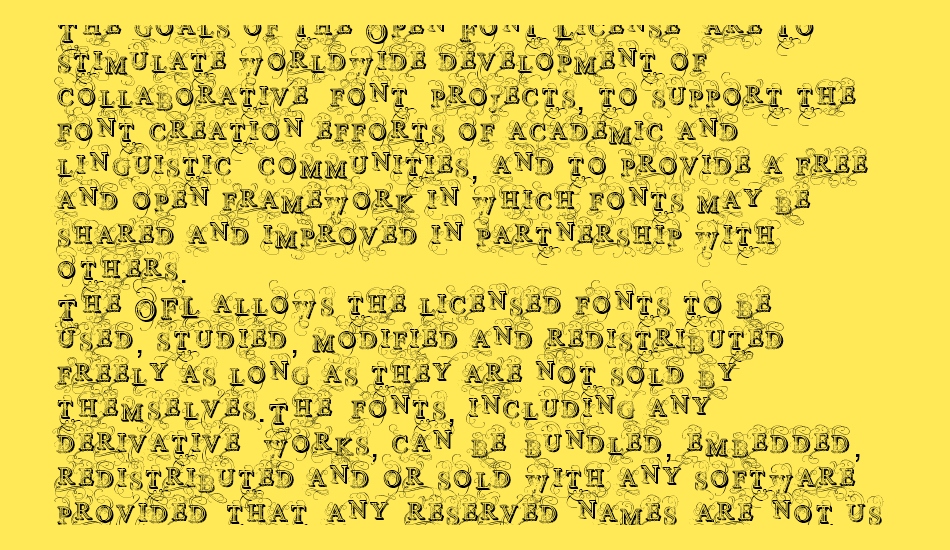 THE GOALS OF THE OPEN FONT LICENSE ARE TO
STIMULATE WORLDWIDE DEVELOPMENT OF
COLLABORATIVE FONT PROJECTS, TO SUPPORT THE
FONT CREATION EFFORTS OF ACADEMIC AND
LINGUISTIC COMMUNITIES, AND TO PROVIDE A FREE
AND OPEN FRAMEWORK IN WHICH FONTS MAY BE
SHARED AND IMPROVED IN PARTNERSHIP WITH
OTHERS.
THE OFL ALLOWS THE LICENSED FONTS TO BE
USED, STUDIED, MODIFIED AND REDISTRIBUTED
FREELY AS LONG AS THEY ARE NOT SOLD BY
THEMSELVES.THE FONTS, INCLUDING ANY
DERIVATIVE WORKS, CAN BE BUNDLED, EMBEDDED,
REDISTRIBUTED AND OR SOLD WITH ANY SOFTWARE
PROVIDED THAT ANY RESERVED NAMES ARE NOT US